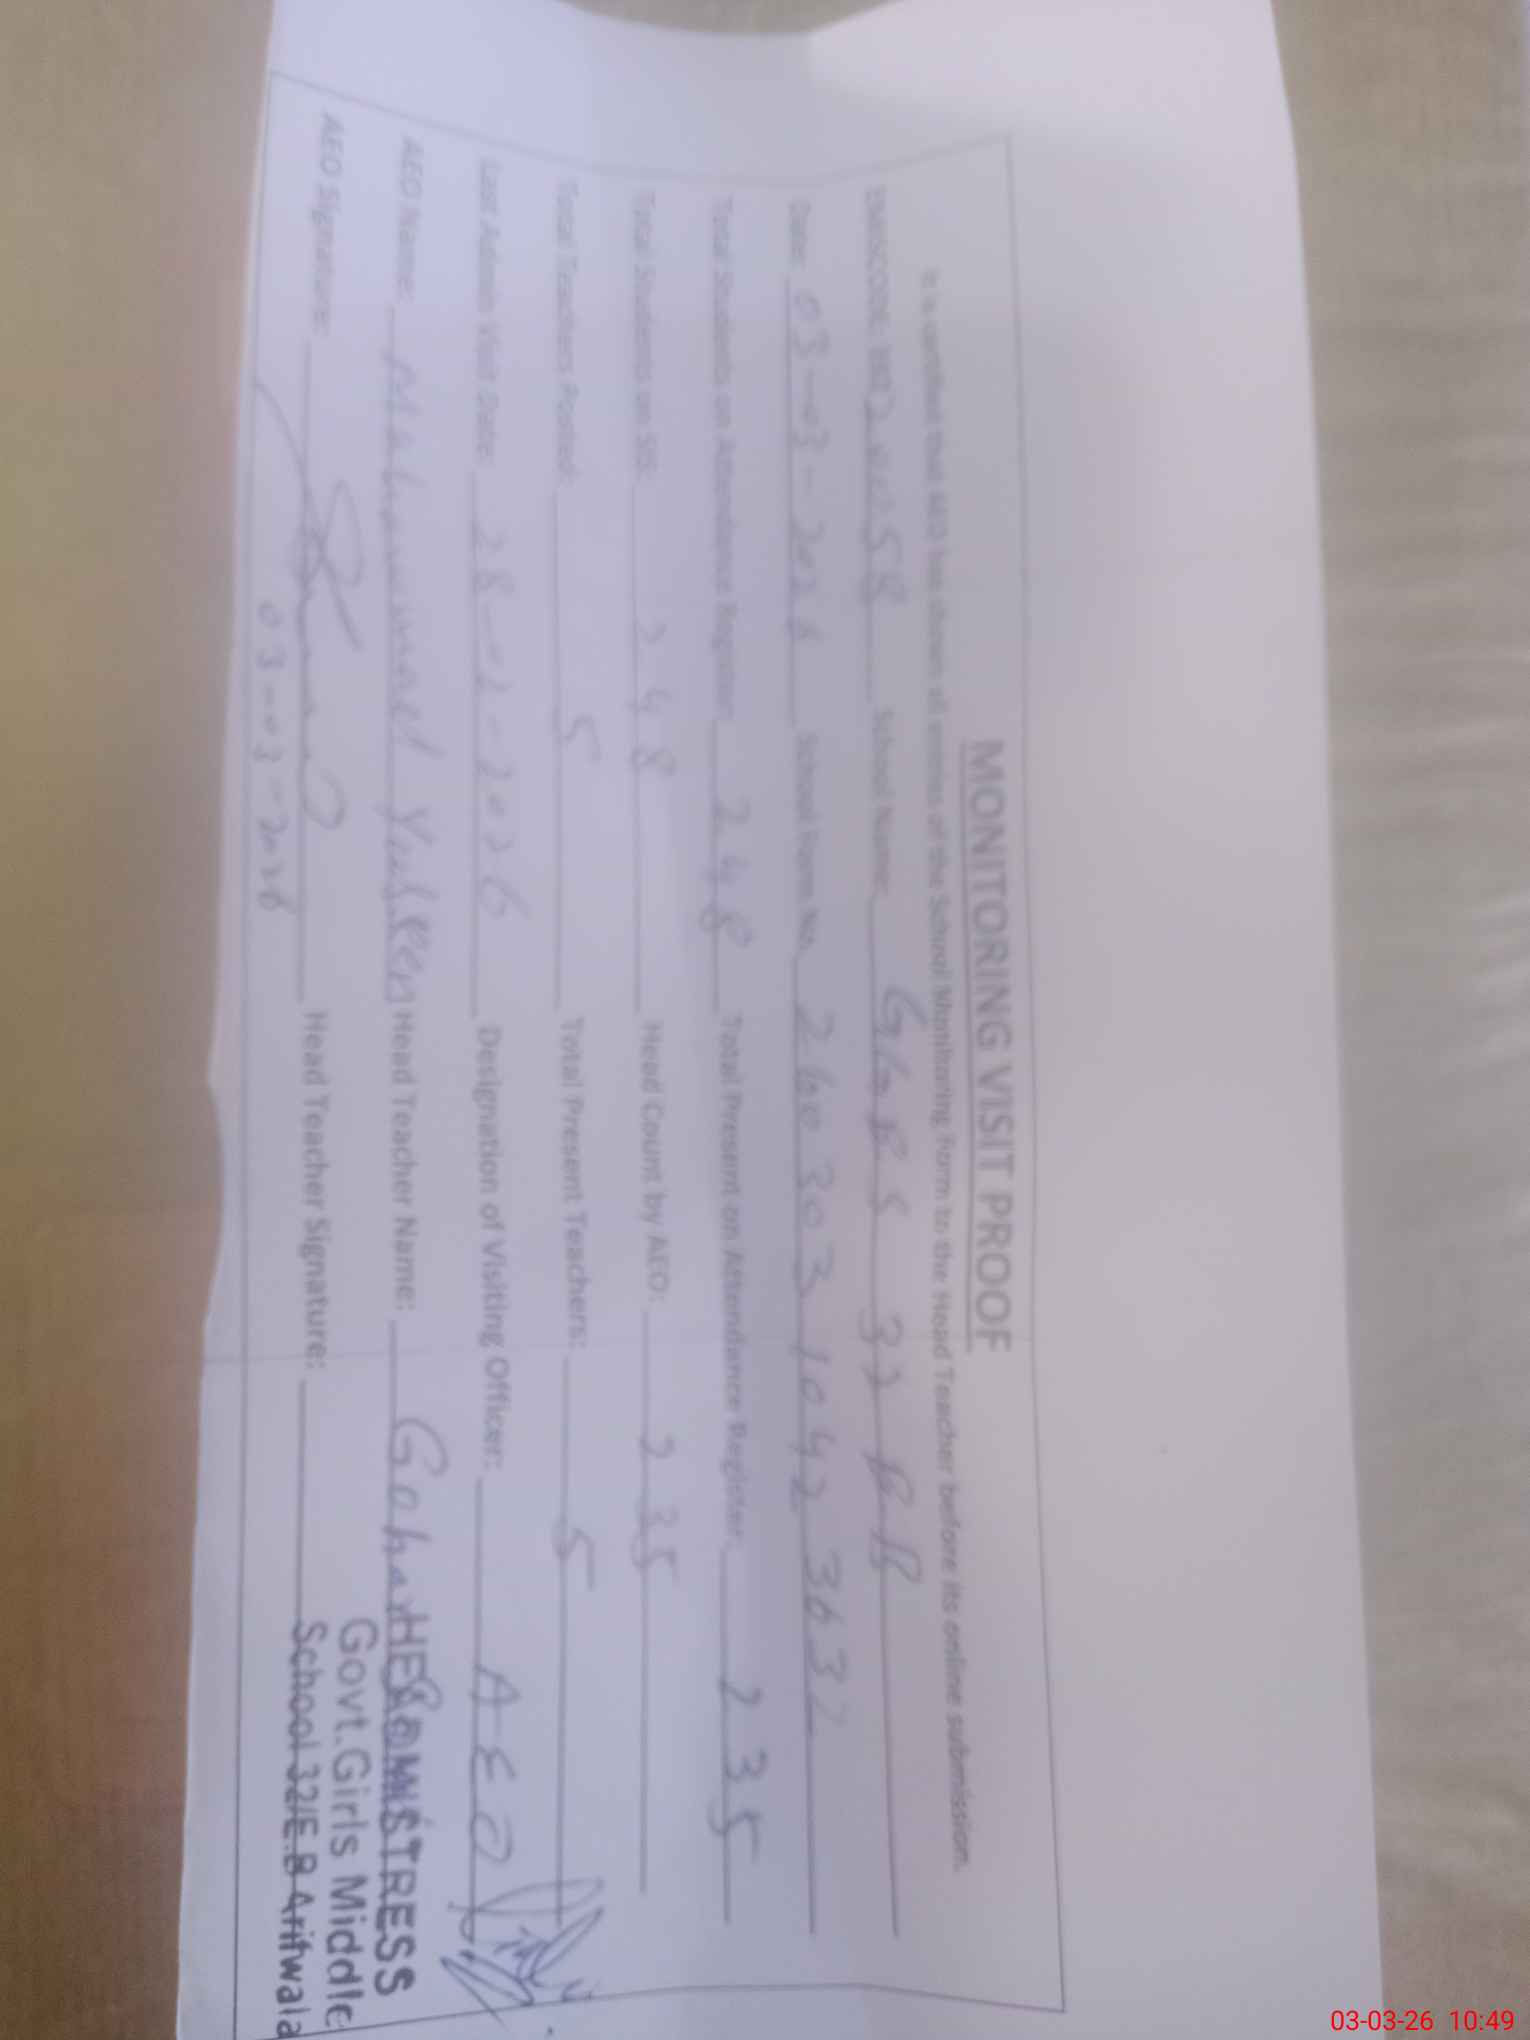 MONITORING VISIT PROOF
It is certified that AEO has shown all entries of the School Monitoring Form to the Head Teacher before its online submission.
EMISCODE: School Name: GGES 32 EB
Date: 03-03-2026 School Form No. 2603031042363
Total Students on Attendance Register: 248 Total Present on Attendance Register: 235
Total Students on SIS: 248 Head Count by AEO: 235
Total Teachers Posted: 5 Total Present Teachers: 5
Last Admin Visit Date: 28-02-2026 Designation of Visiting Officer: AEO
AEO Name: Muhammad Yaseen Head Teacher Name: Gohar
AEO Signature: Head Teacher Signature:
03-03-2026
HEADMISTRESS
Govt.Girls Middle
School 32/E.B Arifwala
03-03-26 10:49